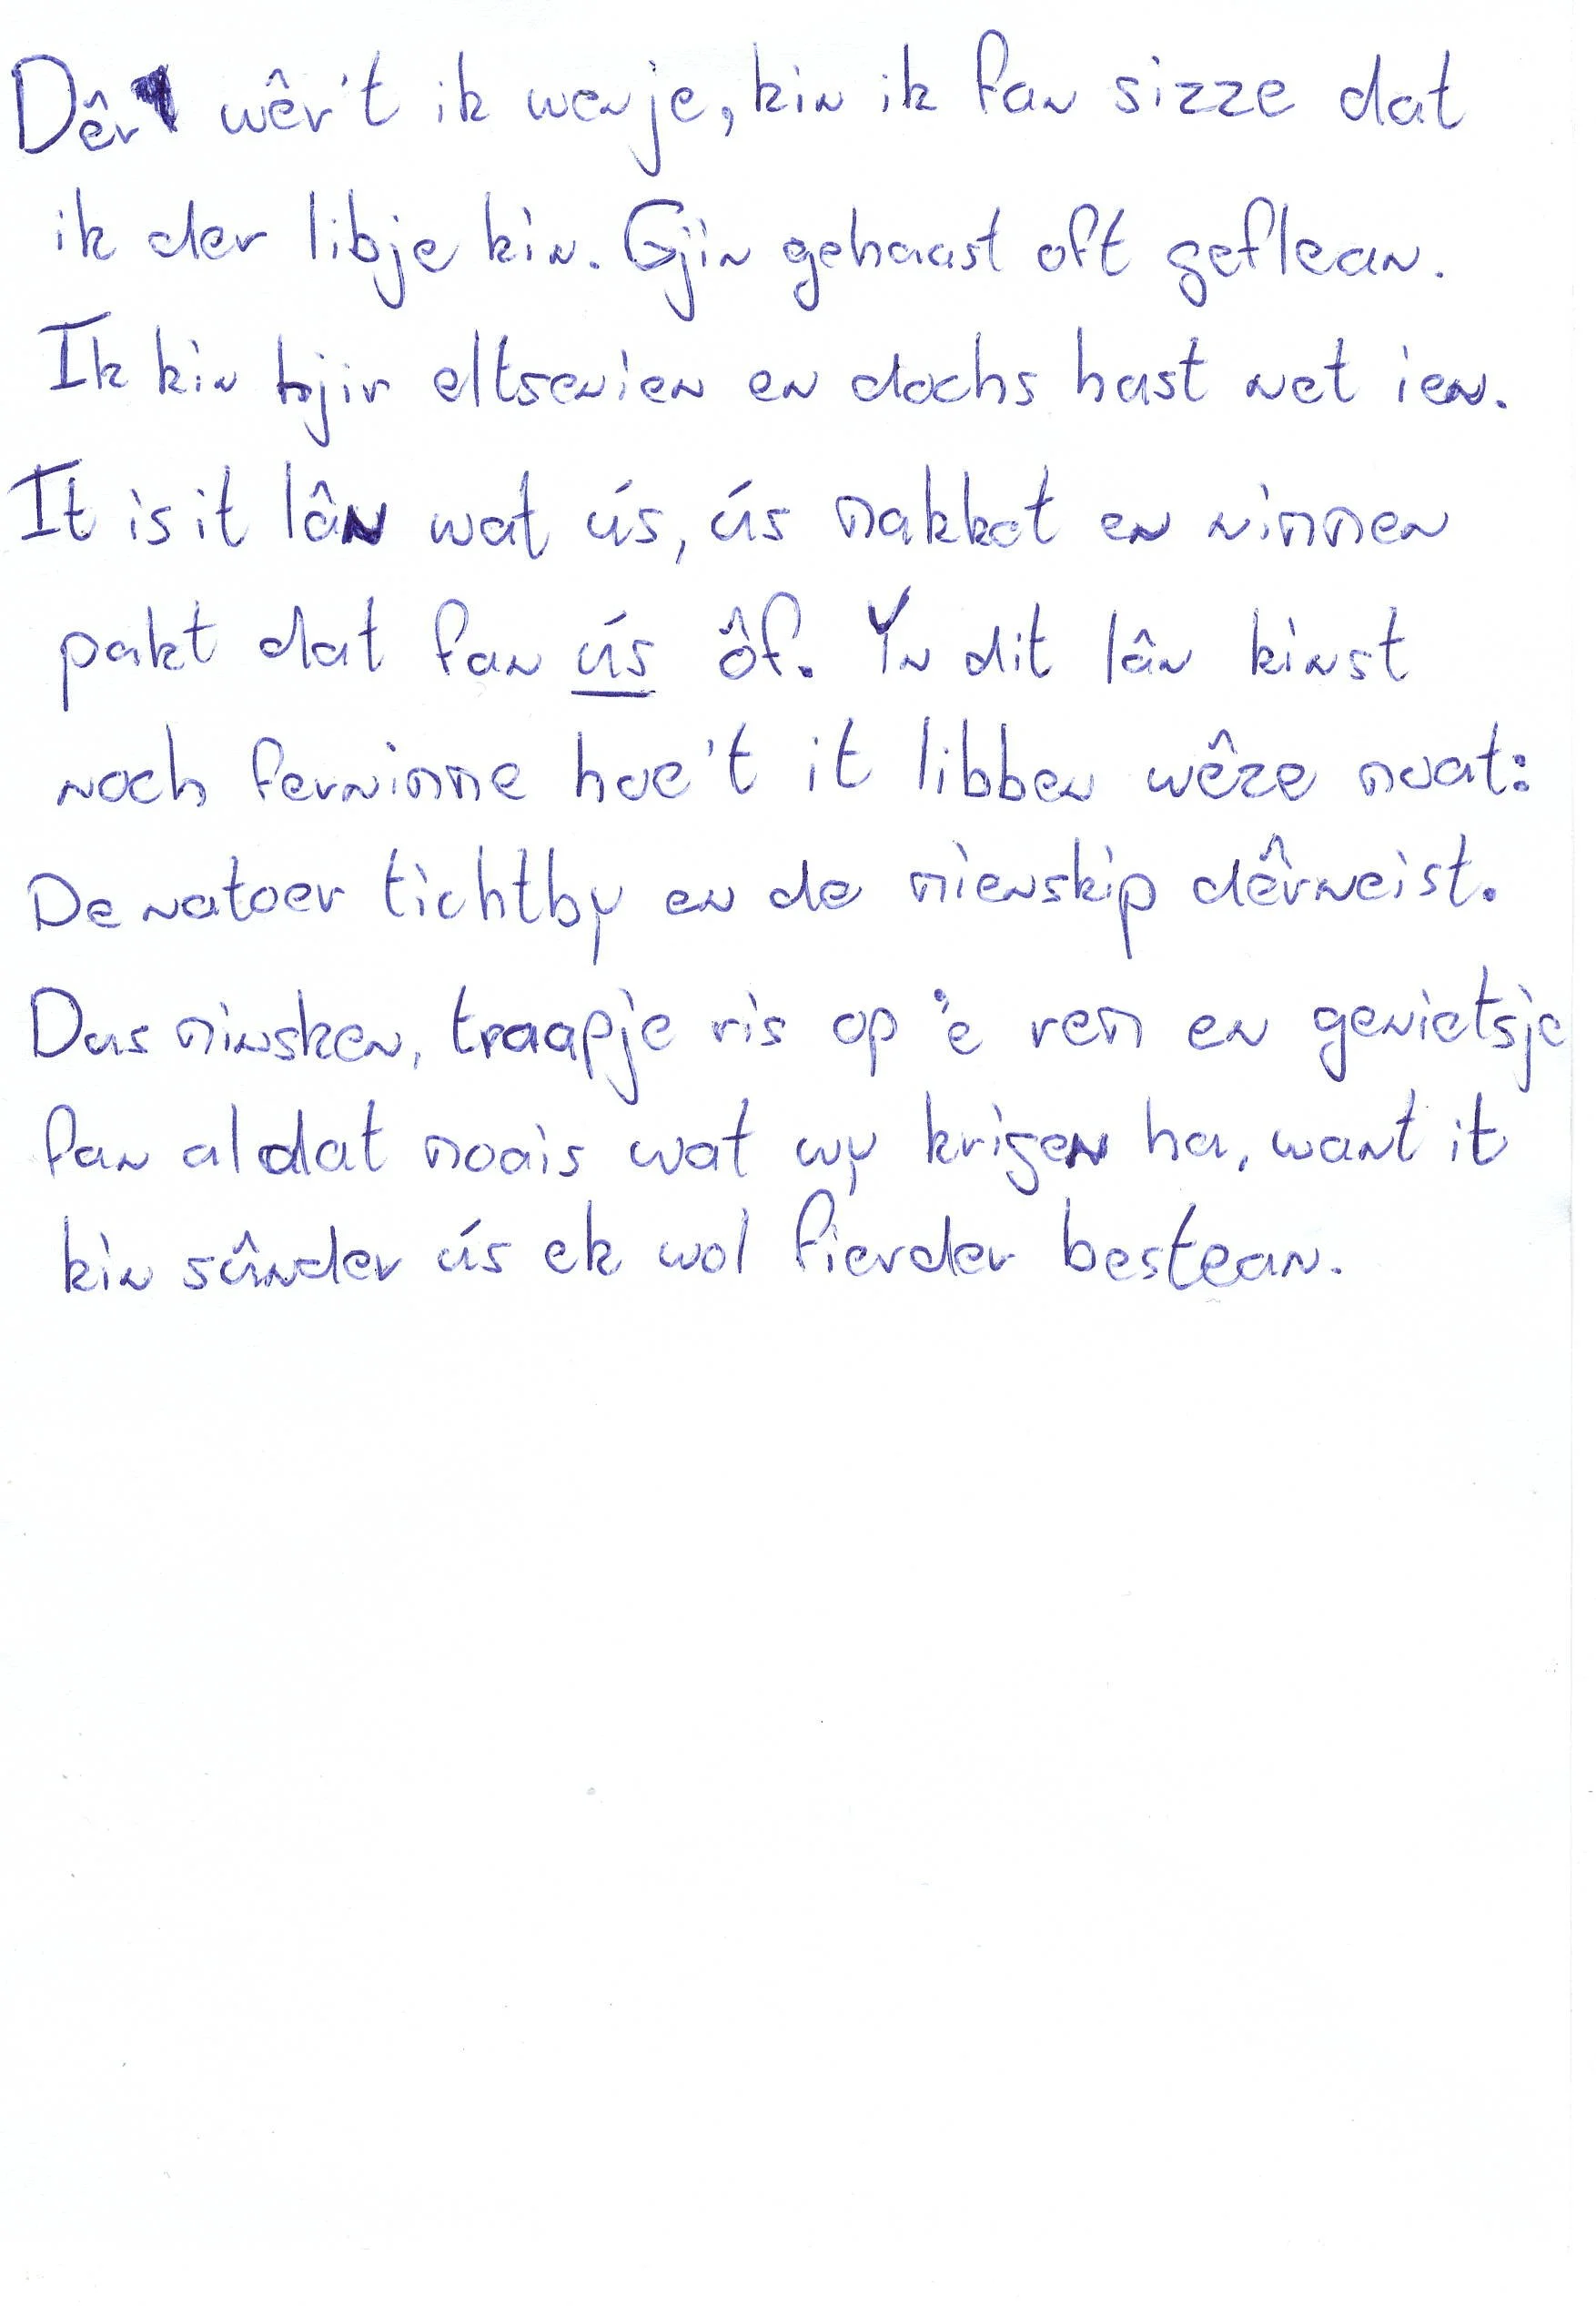 Dêr wêr't ik wenje, kin ik fan sizze dat
ik der libje kin. Gjin gehaast oft geflean.
Ik kin hjir eltsenien en dochs hast net ien.
It is it lân wat ús, ús makket en nimmen
pakt dat fan ús ôf. Yn dit lân kinst
noch fernimme hoe't it libben wêze moat:
De natoer tichtby en de mienskip dêrneist.
Dus minsken, traapje ris op 'e rem en genietsje
fan al dat moais wat wy krigen ha, want it
kin sûnder ús ek wol fierder bestean.